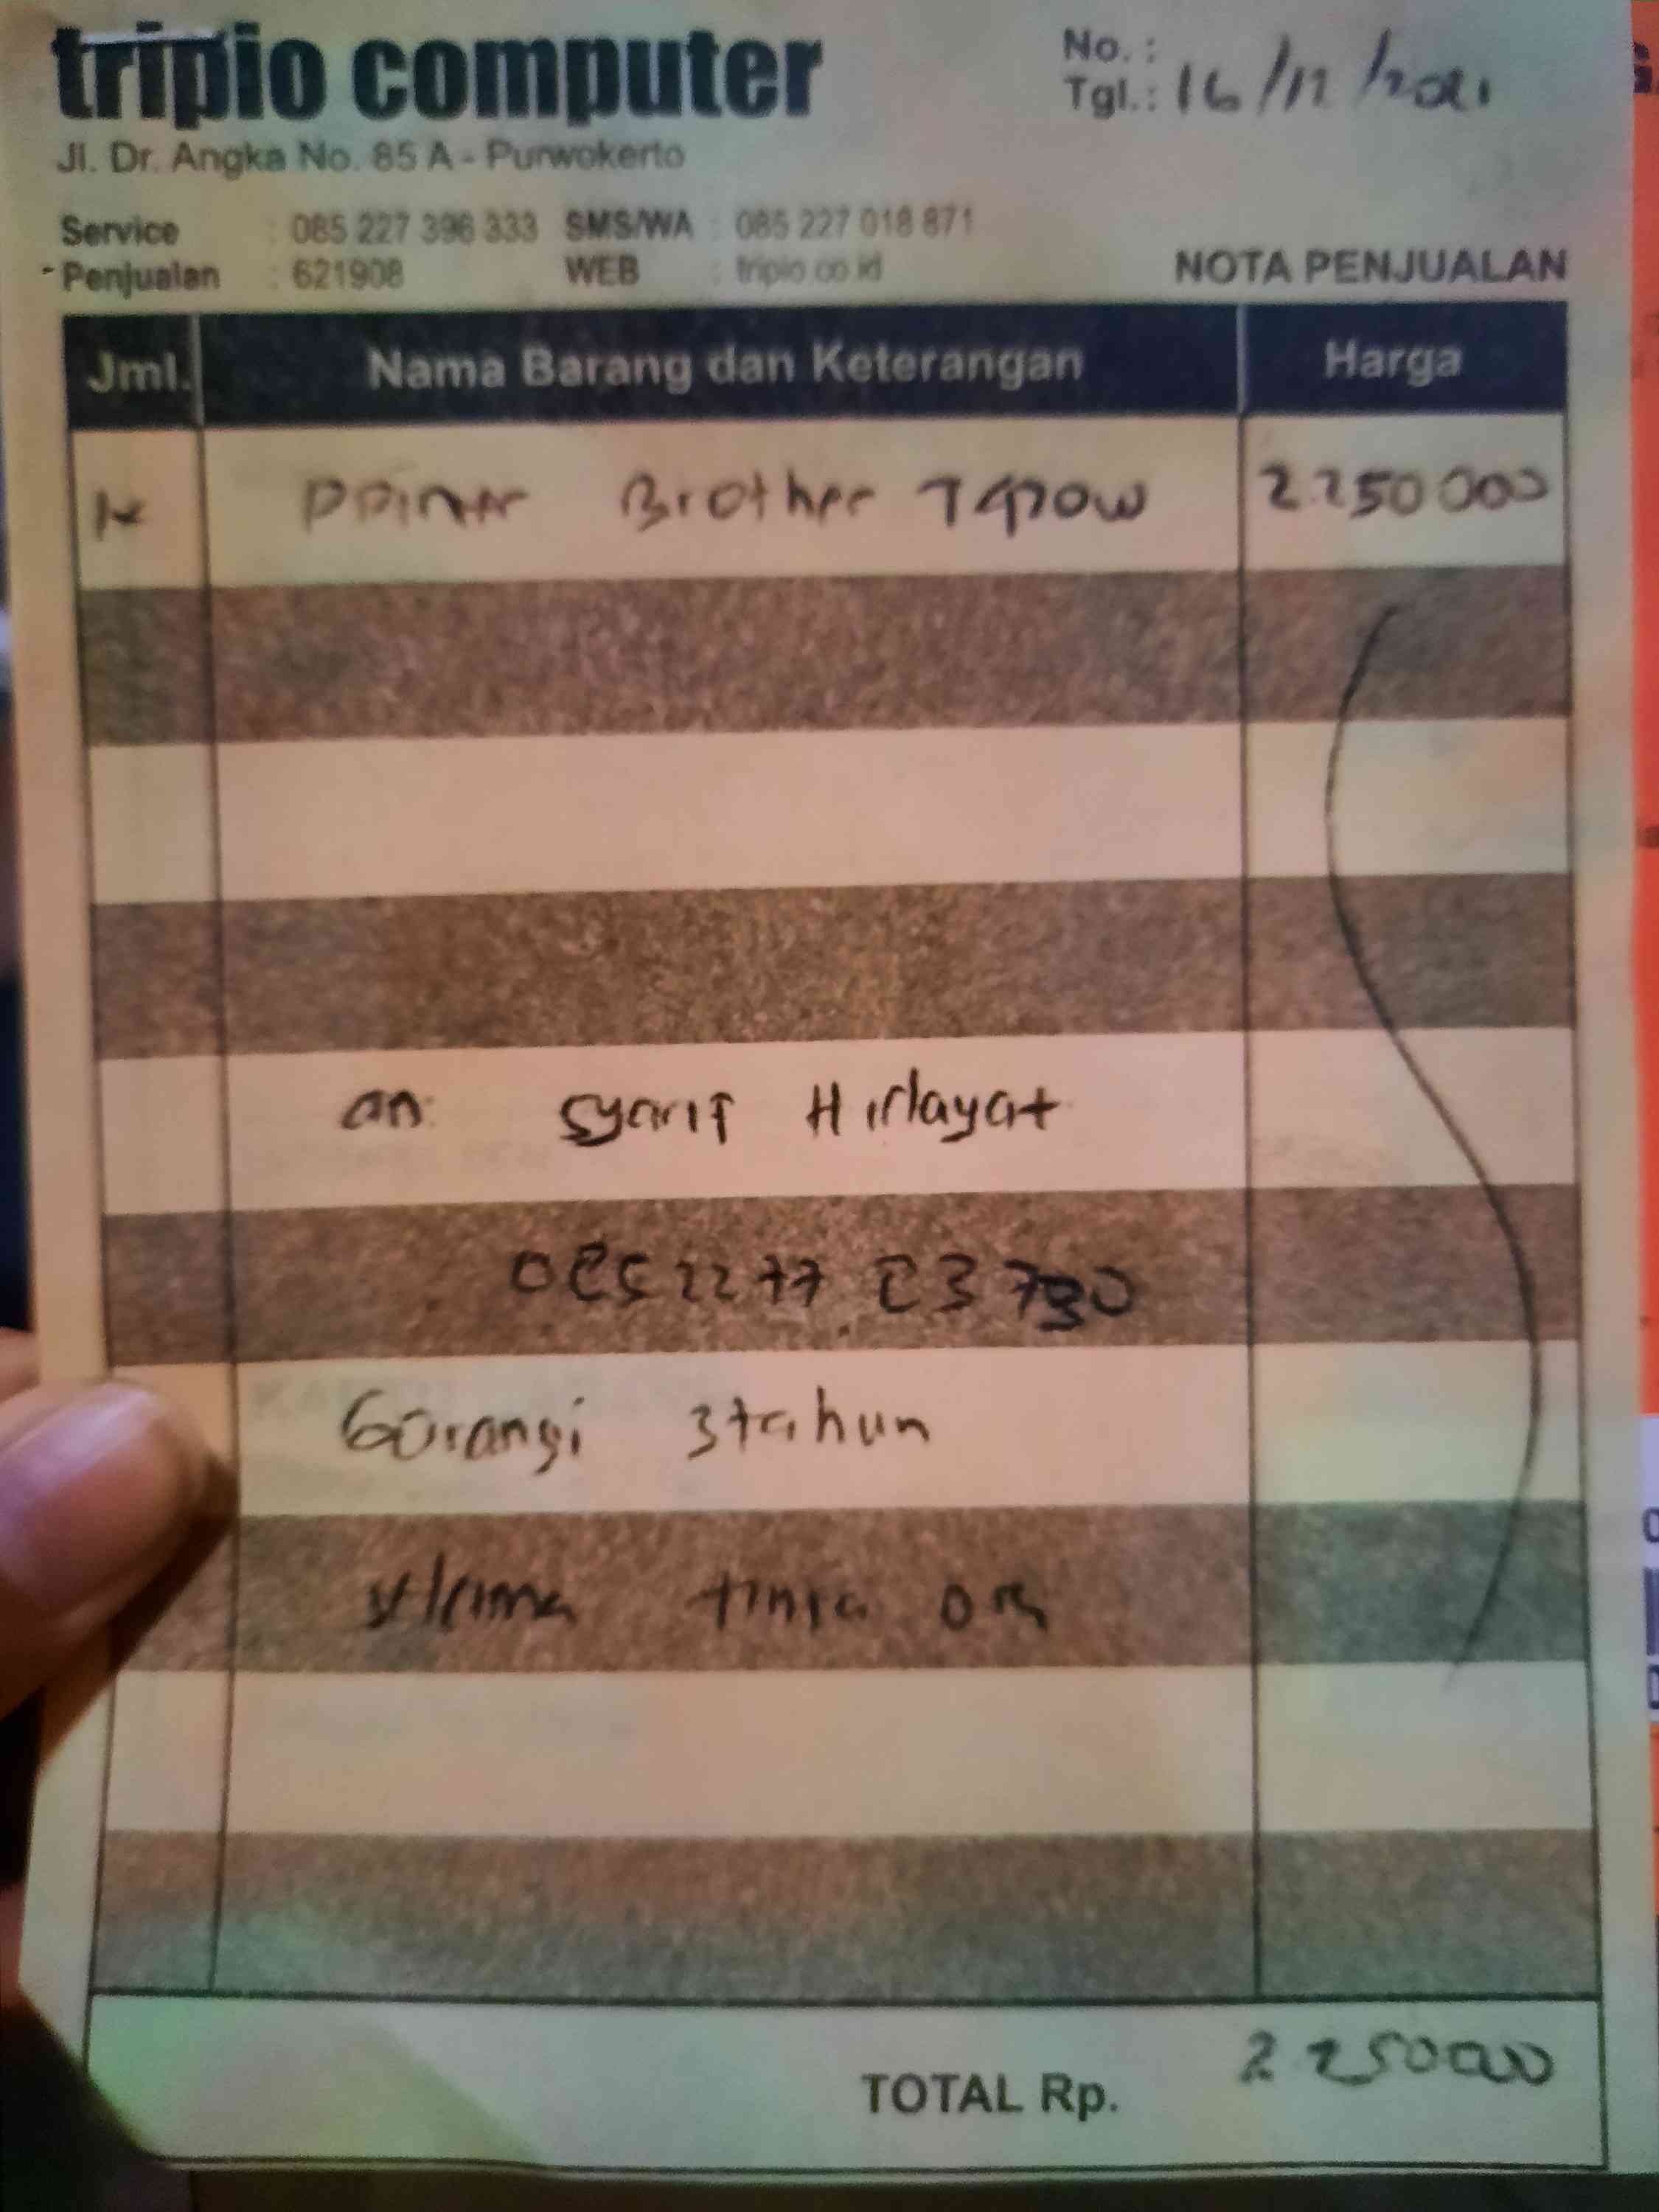 tripio computer
No. :
Tgl.: 16/12/2021
Jl. Dr. Angka No. 85 A - Purwokerto
Service : 085 227 396 333 SMS/WA : 085 227 018 871
Penjualan : 621908 WEB : tripio.co.id
NOTA PENJUALAN
Jml. Nama Barang dan Keterangan Harga
Brother T420W 2.250 000
an: Syarif Hidayat
Garansi 3 tahun
TOTAL Rp. 2 250000